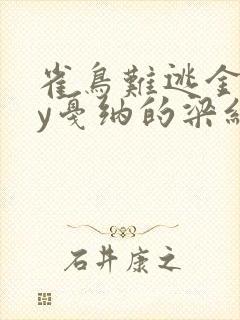 雀鳥難逃金
y戛纳的梁
石井康之